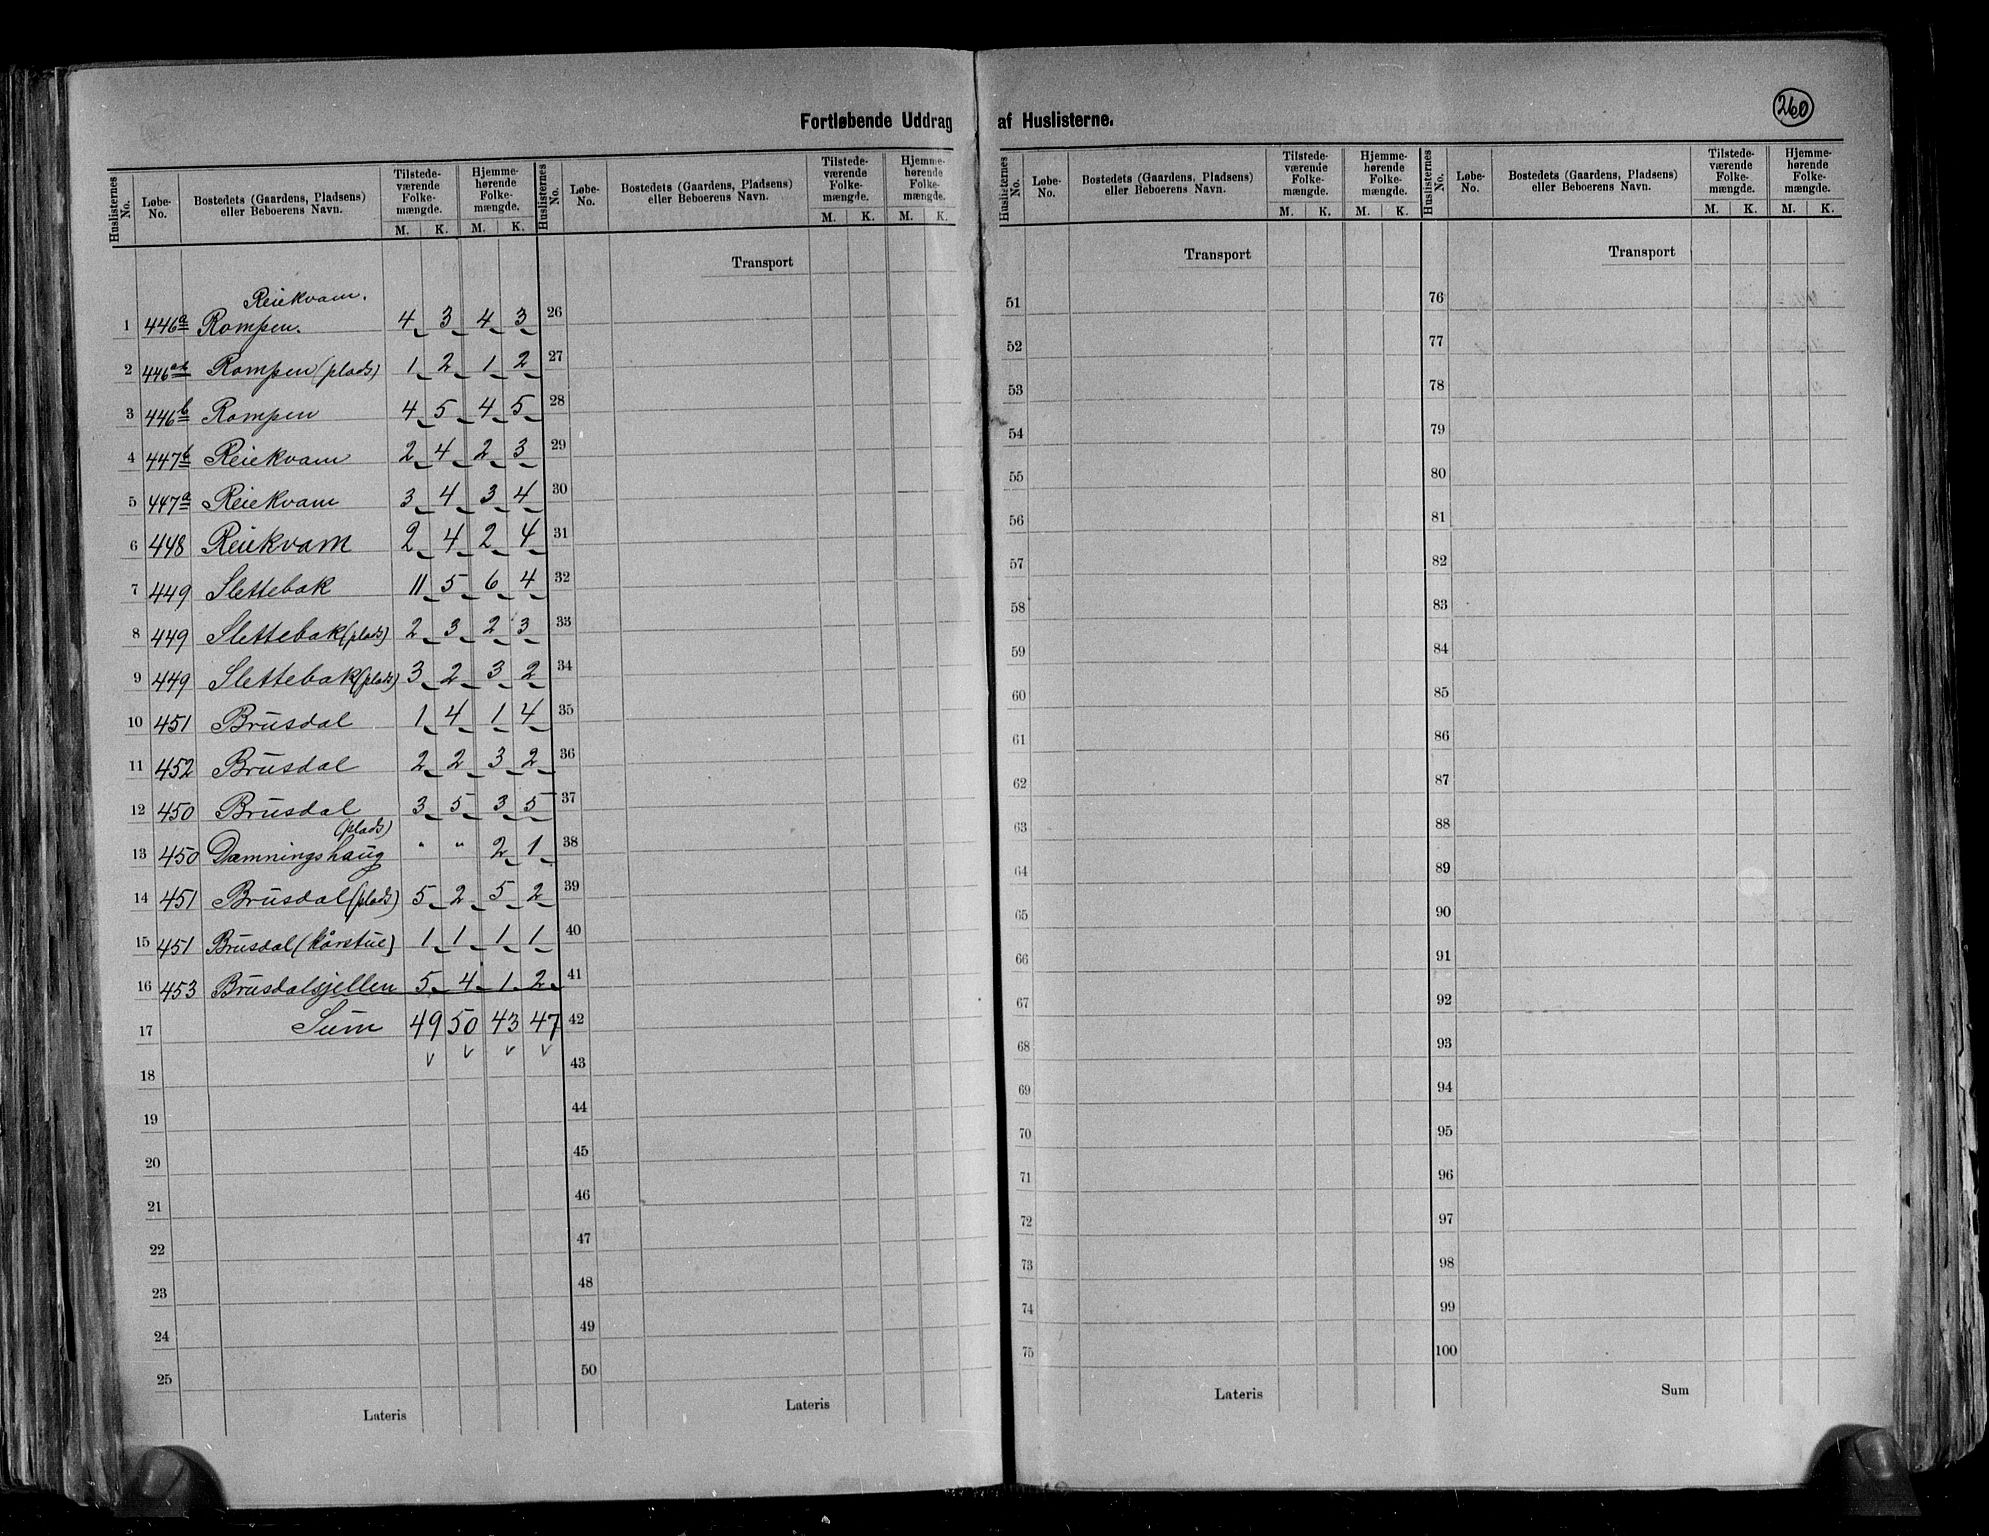 260
Fortløbende Uddrag af Huslisterne.
Huslisternes No. Løbe-No. Bostedets (Gaardens, Pladsens) eller Beboerens Navn. Tilstedeværende Folkemængde. M. K. Hjemmehørende Folkemængde. M. K.
Huslisternes No. Løbe-No. Bostedets (Gaardens, Pladsens) eller Beboerens Navn. Tilstedeværende Folkemængde. M. K. Hjemmehørende Folkemængde. M. K.
Huslisternes No. Løbe-No. Bostedets (Gaardens, Pladsens) eller Beboerens Navn. Tilstedeværende Folkemængde. M. K. Hjemmehørende Folkemængde. M. K.
Huslisternes No. Løbe-No. Bostedets (Gaardens, Pladsens) eller Beboerens Navn. Tilstedeværende Folkemængde. M. K. Hjemmehørende Folkemængde. M. K.
Transport Transport Transport
Reiekvam.
1 446a Rompen. 4 3 4 3 26 51 76
2 446ab Rompen (plads) 1 2 1 2 27 52 77
3 446b Rompen 4 5 4 5 28 53 78
4 447b Reiekvam 2 4 2 3 29 54 79
5 447a Reiekvam 3 4 3 4 30 55 80
6 448 Reiekvam 2 4 2 4 31 56 81
7 449 Slettebak 11 5 6 4 32 57 82
8 449 Slettebak (plads) 2 3 2 3 33 58 83
9 449 Slettebak (plads) 3 2 3 2 34 59 84
10 451 Brusdal 1 4 1 4 35 60 85
11 452 Brusdal 2 2 3 2 36 61 86
12 450 Brusdal 3 5 3 5 37 62 87
(plads)
13 450 Dæmningshaug " " 2 1 38 63 88
14 451 Brusdal (plads) 5 2 5 2 39 64 89
15 451 Brusdal (kårstue) 1 1 1 1 40 65 90
16 453 Brusdalsjellen 5 4 1 2 41 66 91
17 Sum 49 50 43 47 42 67 92
18 43 68 93
19 44 69 94
20 45 70 95
21 46 71 96
22 47 72 97
23 48 73 98
24 49 74 99
25 50 75 100
Lateris Lateris Lateris Sum